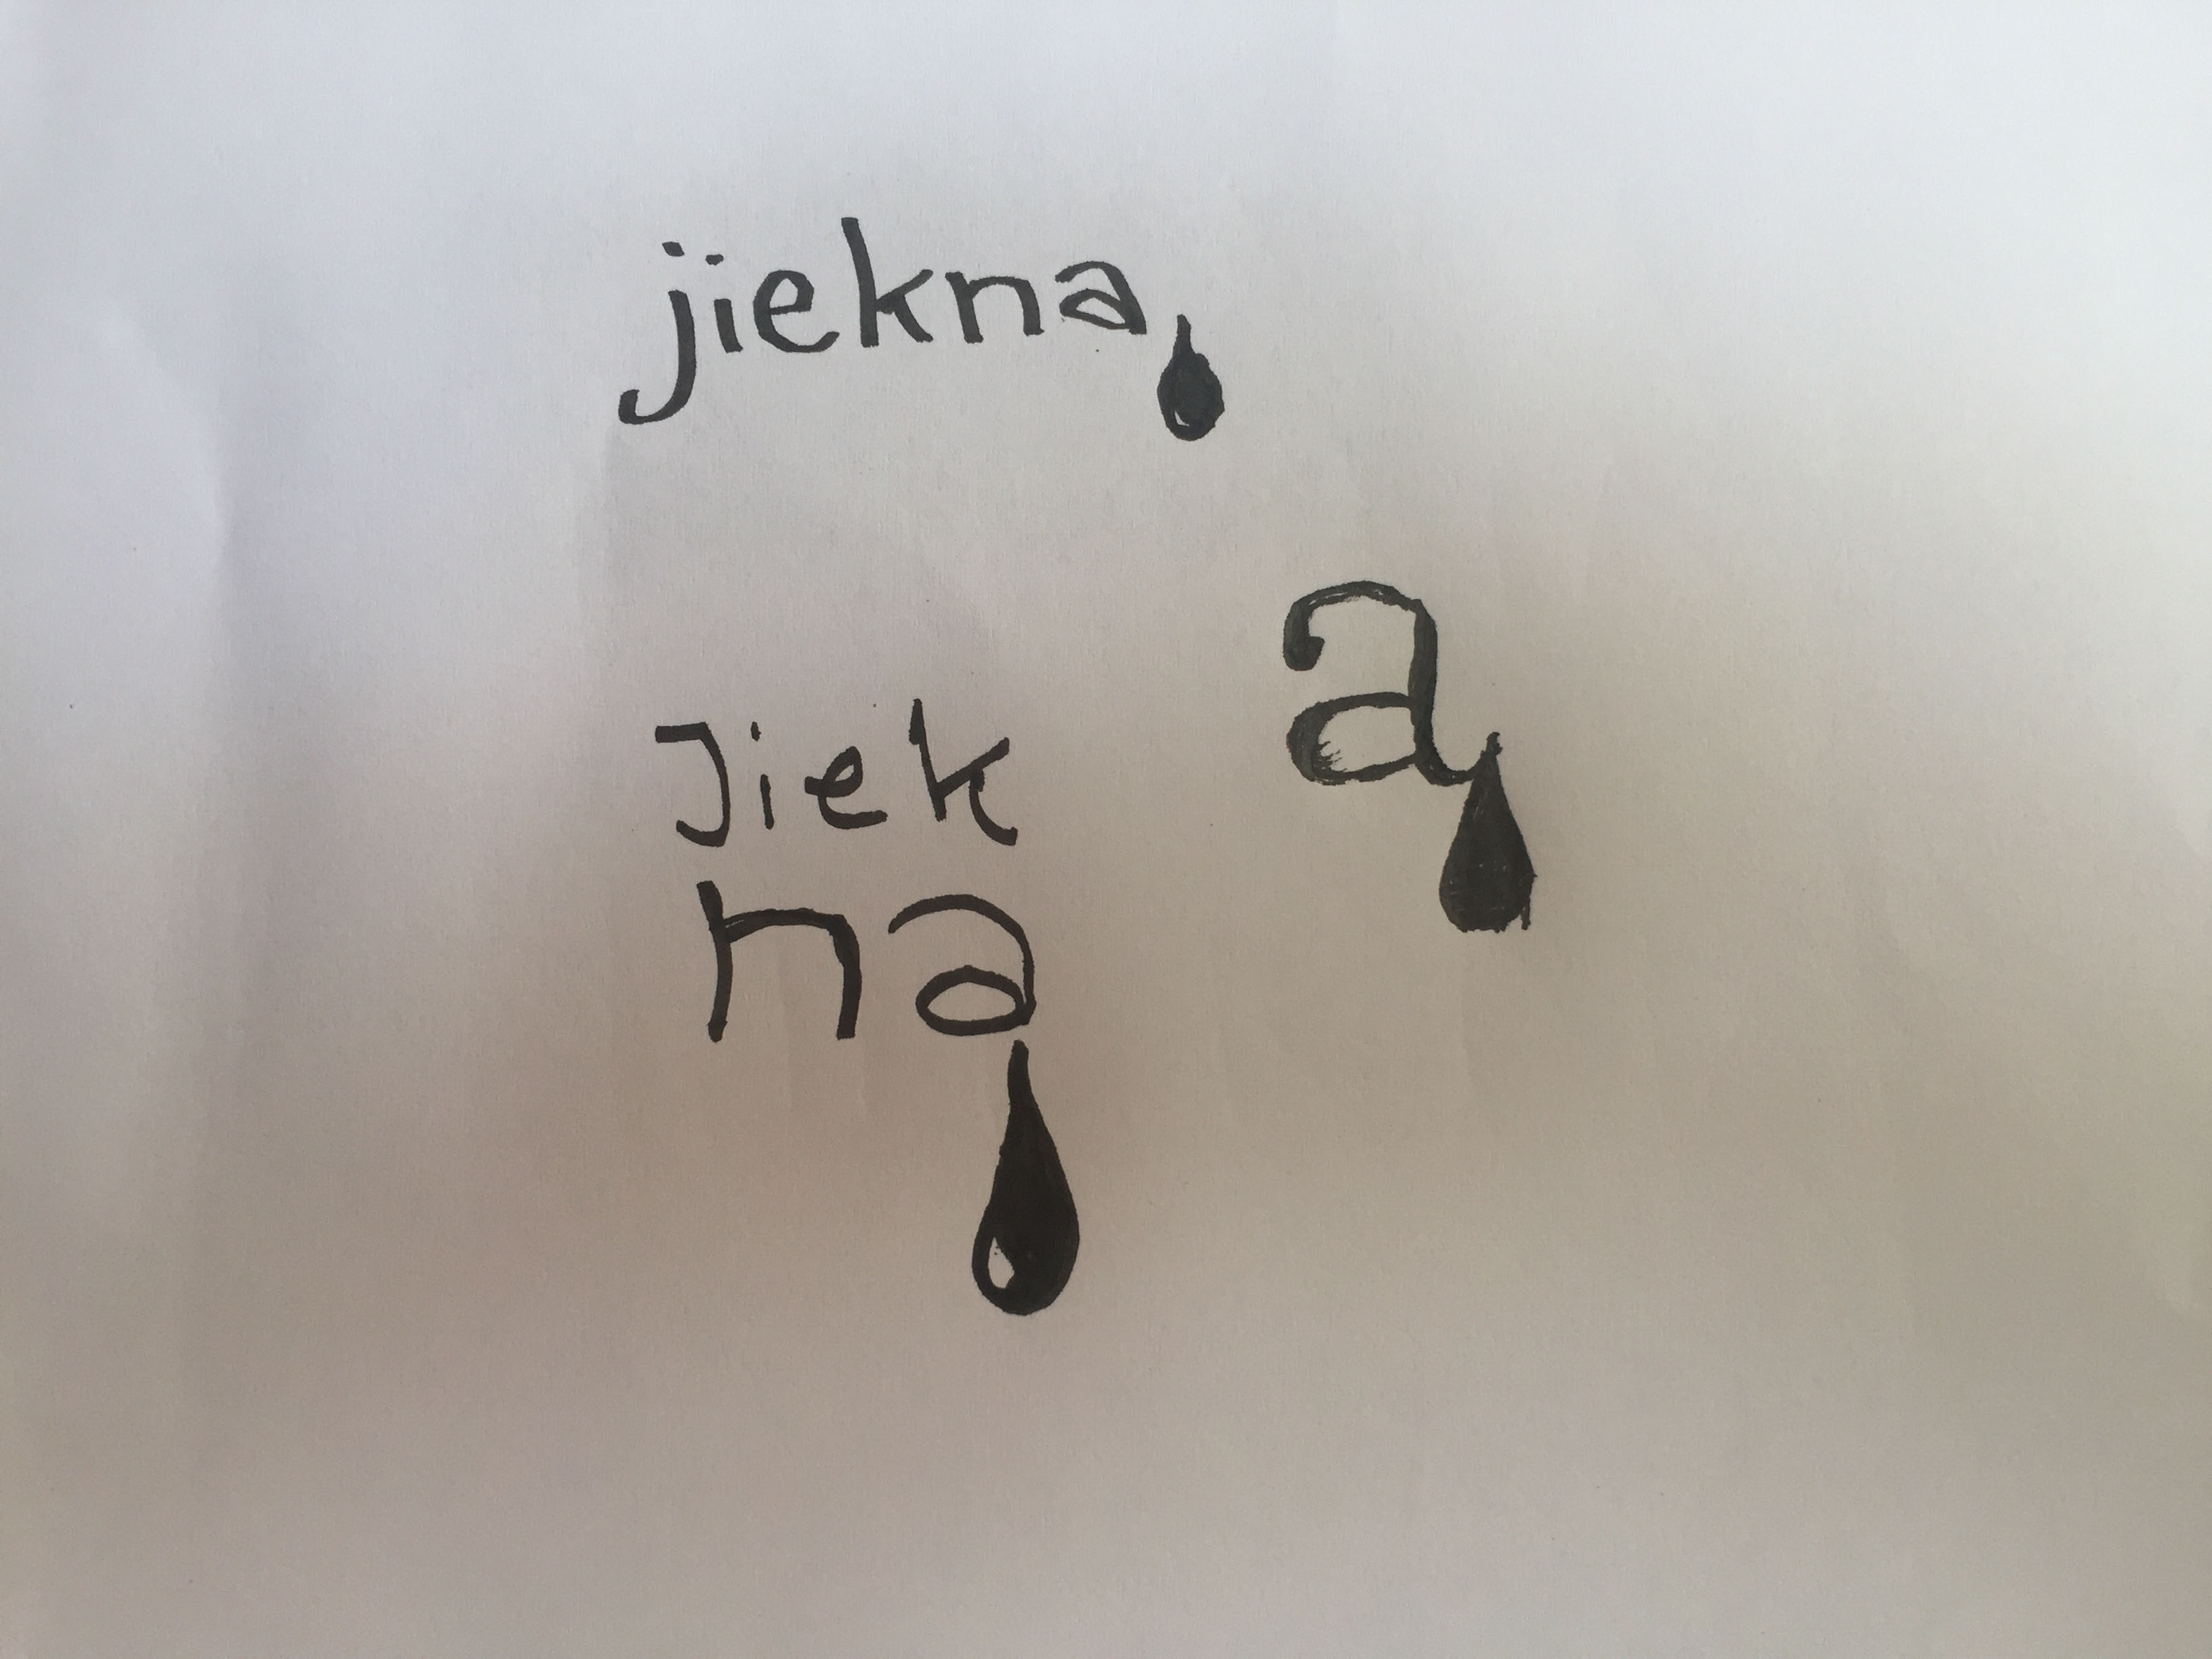 jiekna
a
Jiek
na